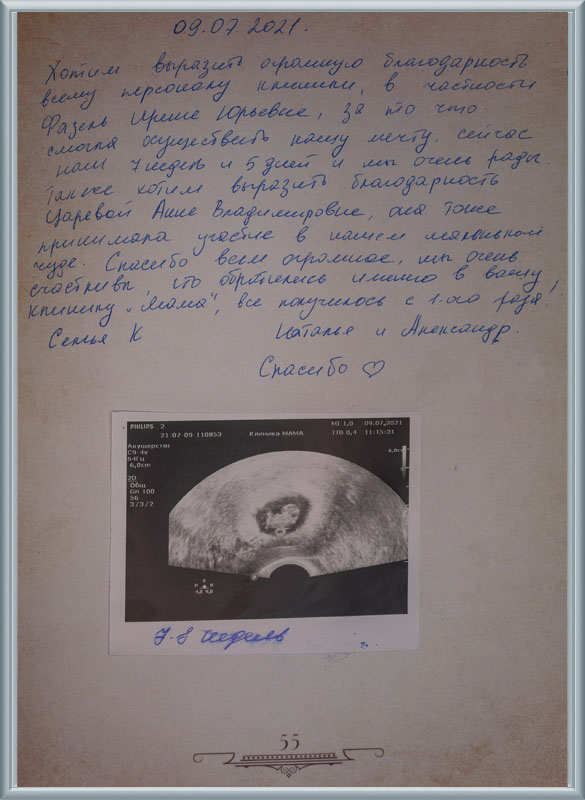 09.07.2021.
Хотим выразить огромную благодарность
всему персоналу клиники, в частности
Фазель Ирине Юрьевне, за то что
смогла осуществить нашу мечту, сейчас
нам 7 недель и 5 дней и мы очень рады.
Также хотим выразить благодарность
Царевой Анне Владимировне, она тоже
принимала участие в нашем маленьком
чуде. Спасибо всем огромное, мы очень
счастливы, что обратились именно в вашу
клинику „Мама", все получилось с 1-ого раза!
Семья К Наталья и Александр.
Спасибо ♡
PHILIPS 2 MI 1,0 09.07.2021
21-07-09-110853 Клиника МАМА TIB 0,4 11:15:31
Акушерство
C9-4v
64Гц
6,0cm
2D
Общ
Gn 100
56
3/3/2
7-8 недель
55